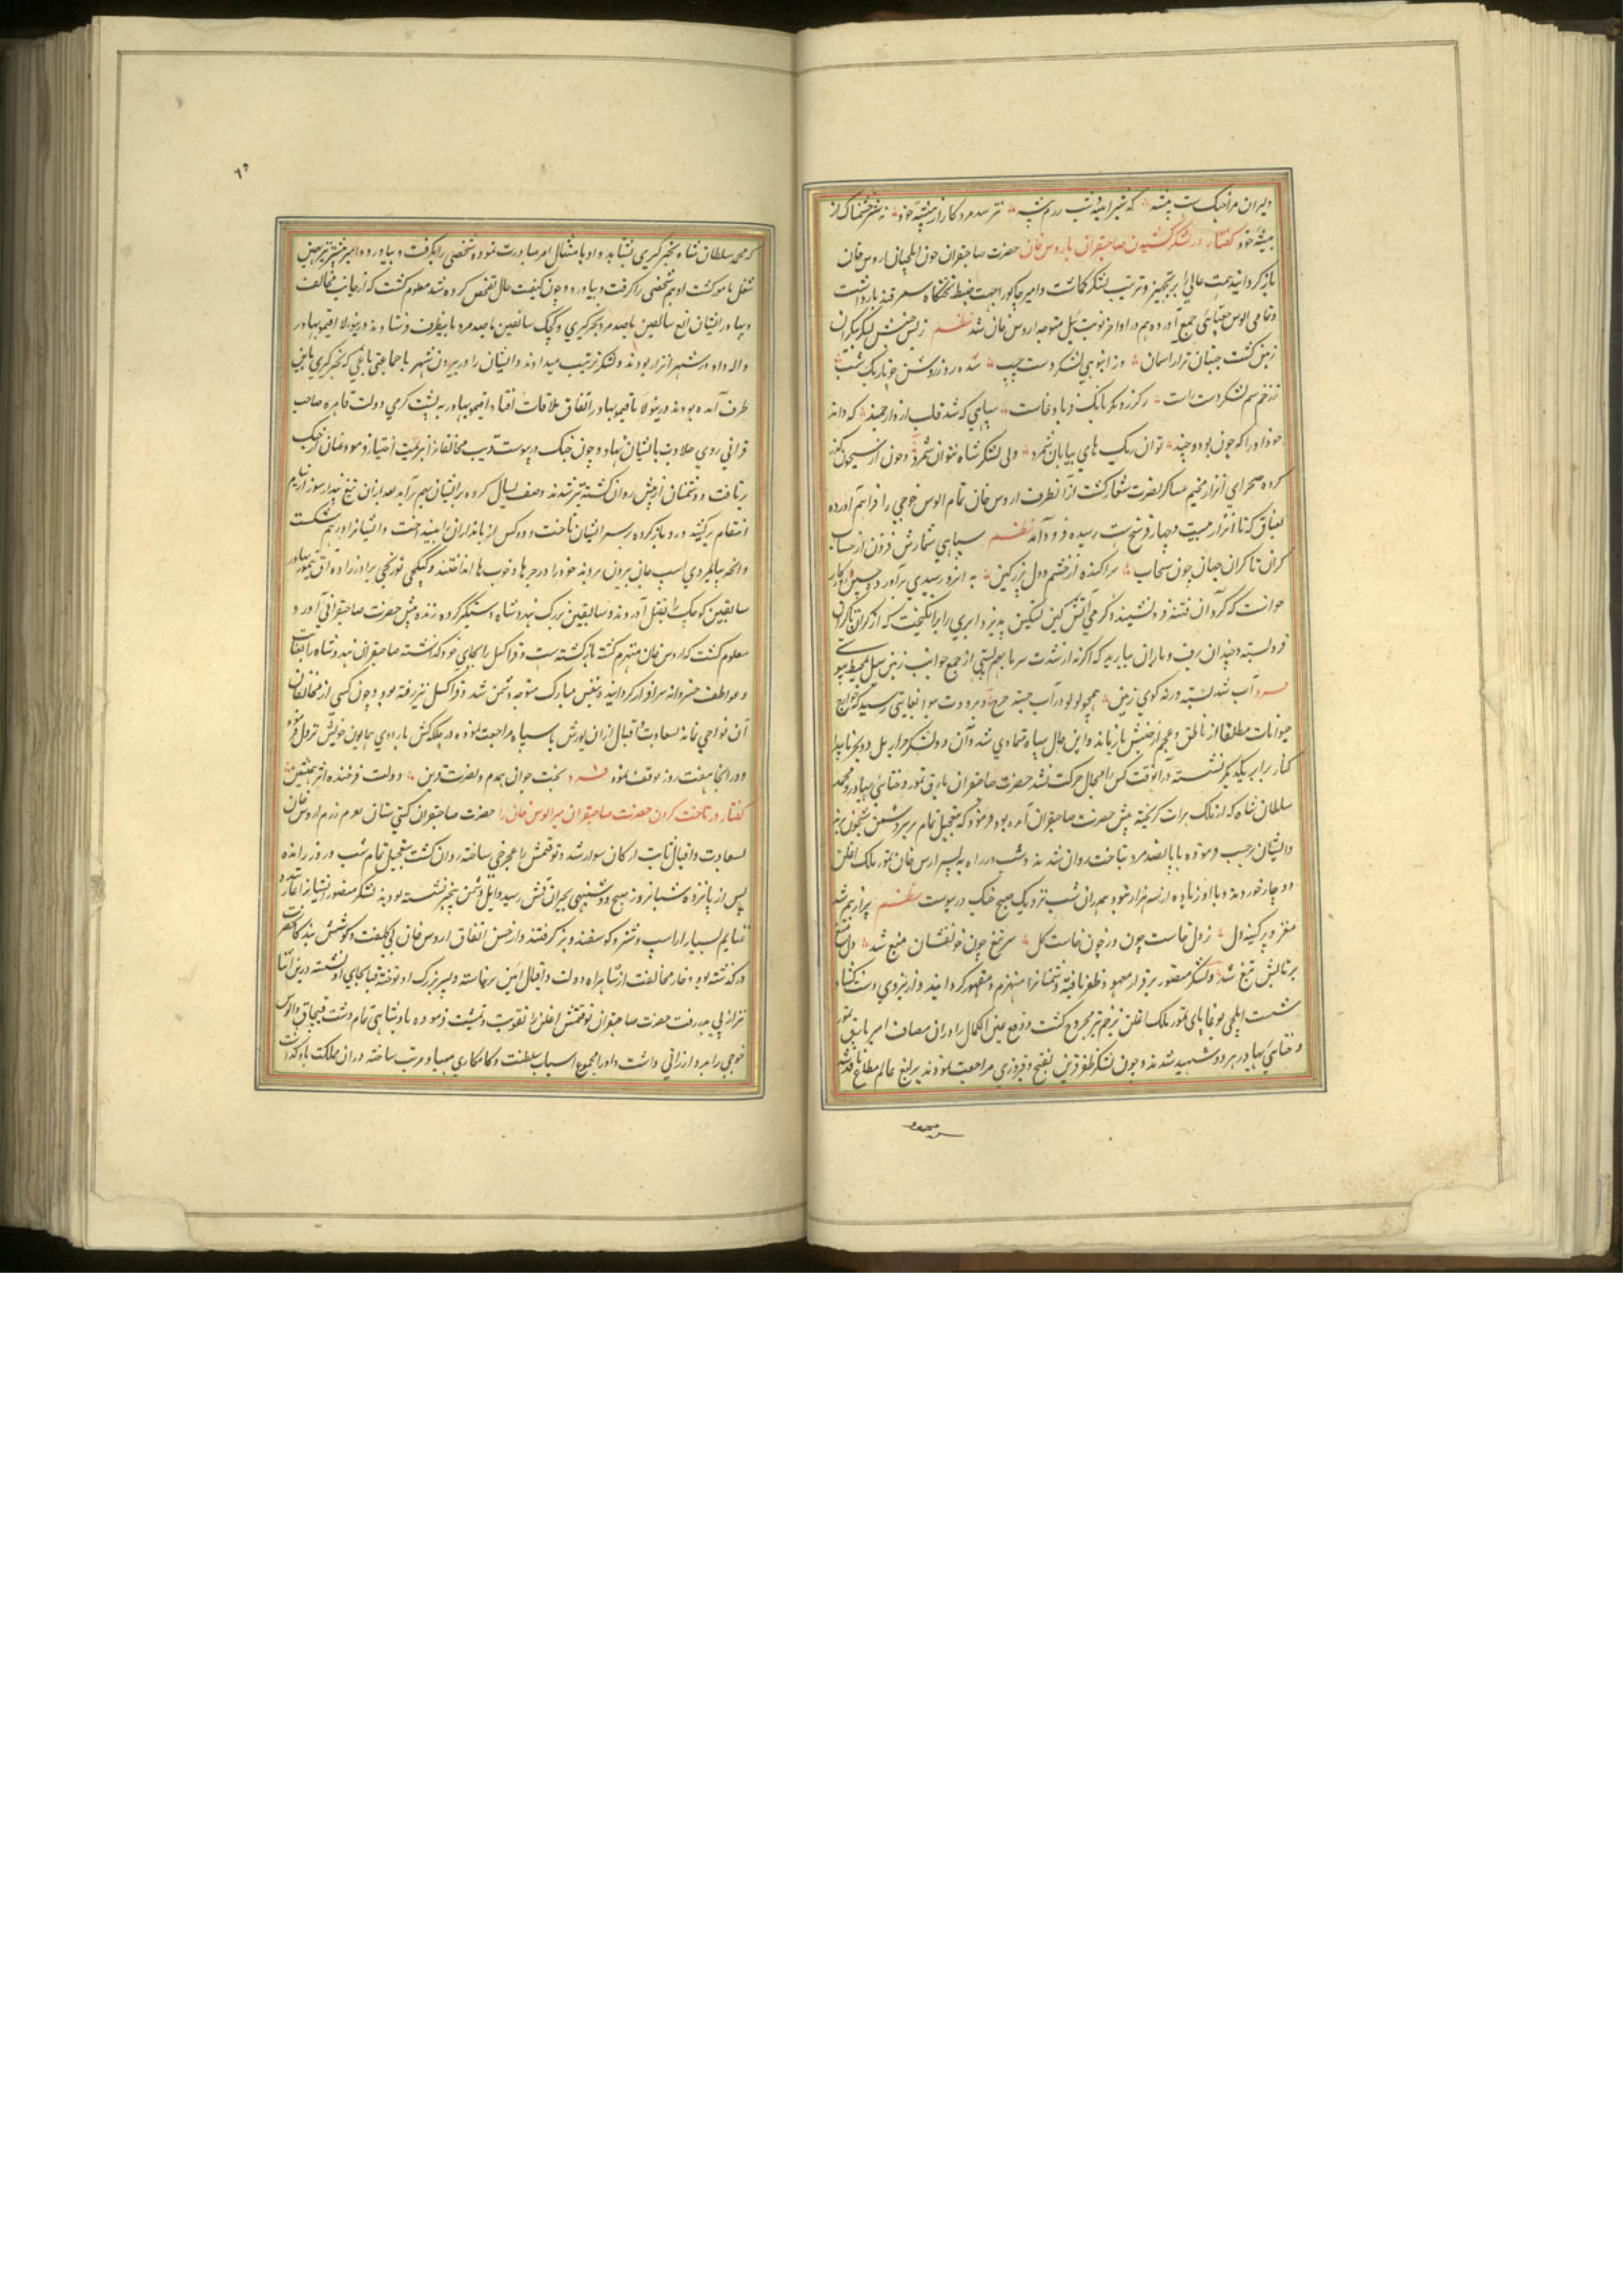 دلیران مراجنگ ست پیشه که شیرانیه وتب رزم بیشه نترسد مرد کار از پیشه خود نه شیر خشمناک از
بیشه خود گفتار در لشکر کشیدن صاحبقران باروس خان حضرت صاحبقران چون ایلچیان اروس خان
باز گردانید همت عالی را بر تجهیز و ترتیب لشکر گماشت و امیر چاکو را جهت ضبط تختگاه سمرقند بازداشت
و تمامی الوس جغتای جمع آورده هم در اواخر توت ییل متوجه اروس خان شد نظم ز بس جنبش لشکر بیکران
زمین گشت جنبان تر از آسمان وز انبوهی لشکر دست چپ شده روز روشن چو تاریک شب
ز زخم سم لشکر دست راست دگر بانک و باد خاست سپاهی که شد قلب ازو ارجمند که داند
خود او را که چون بود و چند توان ریگ های بیابان شمرد ولی لشکر شاه نتوان شمرد و چون از سیحون گذر
کرده صحرای اترار مخیم عساکر نصرت شعار گشت از آنطرف اروس خان تمام الوس جوجی را فراهم آورده
سغناق که تا اترار بیست و چهار فرسخ ست رسیده فرود آمد نظم سپاهی شمارش فزون از حساب
کران تا کران جهان چون سحاب سراکنده از خشم و دل پر ز کین به
خواست که گرد آن فتنه فرو نشیند و گرمی آتش کین تسکین پذیرد ابری را برانگیخت که از کران تا کران
فرو بسته و چندان برف و باران ببارید که اگر نه از شدت سرما بهم بستی از جمیع جوانب زمین سیل محیط
فرد آب شد بسته ورنه کوی زمین همچو لولو در آب جسته و برودت هوا بغایتی رسید که جوارح
حیوانات مطلقا از ناطق و عجم از جنبش باز ماند و این حال سه ماه تمادی شد و آن دو لشکر جرار
کنار برابر یکدیگر نشسته در آنوقت کس را مجال حرکت نشد حضرت صاحبقران یارق تیمور و ختای بهادر و محمد
سلطان شاه که از ملک هرات گریخته پیش حضرت صاحبقران آمده بود فرمود که بتعجیل تمام بر سر دشمن شبخون برند
و ایشان بر حسب فرموده با پانصد مرد بتاخت روان شدند و شب در راه به پسر ارس خان تیمور ملک اغلن
دوچار خوردند و با او زیاده از سه هزار سوار بود و همدران شب نزدیک صبح جنگ در پیوست نظم پر از خشم شد
مغز و پر کینه دل ز دل خاست چون
برنالش تیغ شد و لشکر منصور بر قرار معهود ظفر یافته دشمنانرا منهزم و مقهور گردانیدند و از نیروی دست گشاد
شست ایلچی بوغا پای تیمور ملک اغلن بزخم تیر مجروح گشت و دفع عین الکمال را در آن مصاف امیر یارق تیمور
و ختای بهادر هر دو شهید شدند و چون لشکر ظفر قرین بفتح و فیروزی مراجعت نمودند یرلیغ عالم مطاع نافذ شد
٦٥
که محمد سلطان شاه بخبر گیری بشتابد و او با متثال امر مبادرت نموده شخصی را بگرفت و بیاورد و امیر مبشر نیز بهمین
شغل مامور گشت او هم شخصی را گرفت و بیاورد و چون کیفیت حال تفحص کرده شد معلوم گشت که از جانب مخالف
دو بهادر ایشان الغ ساتقین با صد مرد بخبر گیری و کچک ساتقین با صد مرد باینطرف فرستادند و درینولا اقتیمور بهادر
و الله داد در شهر اترار بودند و لشکر ترتیب میدادند و ایشان را در بیرون شهر با جماعتی یاغی که بخبر گیری باین
طرف آمده بودند درینولا باقتیمور بهادر اتفاق ملاقات افتاد اقتیمور بهادر به پشت گرمی دولت قاهره صاحب
قرانی روی جلادت بایشان نهاد و چون جنگ در پیوست فریب مخالفان را هزیمت اختیار فرمود و عنان از جنگ
بر تافت و دشمنان از پیش روان گشته تیز شدند و صف یسال کرده بر ایشان بهم برآمد بعد از آن تیغ جهان سوز از نیام
انتقام برکشید و رو باز کرده بر سر ایشان تاخت و ایشانرا در هم شکست
و آنچه بپایمردی اسپ جان بیرون بردند خود را در جرها و جوب ها انداختند و کیکچی تورکچی برادرزاده آق تیمور بهادر
ساتقین کوچک را بقتل آوردند و ساتقین بزرگ هندوشاه دستگیر کرده زنده پیش حضرت صاحبقرانی آورد و
معلوم گشت که اروس خان منهزم گشته باز گشته ست و قراکسل را بجای خود گذاشته صاحبقران هندوشاه را بعنایات
و عواطف خسروانه سرافراز گردانیده بنفس مبارک متوجه دشمن شد و قراکسل نیز رفته بود و چون کسی از مخالفان
آن نواحی نمانده بسعادت و اقبال از آن یورش با سپاه مراجعت نموده در جلگه کش باردوی همایون خویش نزول فرمود
و در آنجا هفت روز توقف نمود فرد بخت جوان همدم و نصرت قرین دولت فرخنده اثر همنشین
گفتار در تاخت کردن حضرت صاحبقران بر الوس خان را حضرت صاحبقران گیتی ستان بعزم رزم اروس خان
بسعادت و اقبال ثابت ارکان سوار شد و توقتمش را غجرجی ساخته روان گشت بتعجیل تمام شب و روز رانده
پس از پانزده شبانروز صبح دوشنبهی بجیران قمش رسید و ایل دشمن بیخبر نشسته بودند لشکر منصور ایشانرا غارتیده
غنایم بسیار از اسپ و شتر و گوسفند و برده گرفتند و از حسن اتفاق اروس خان بی کلفت و کوشش بندگان حضرت
درگذشته بود و خار مخالفت از شاهراه دولت و اقبال این برخاسته و پسر بزرگ او توخته قیا بجای او نشسته درین اثنا
نیز از پی پدر رفت حضرت صاحبقران توقتمش اغلن را تقویت و تمشیت فرموده پادشاهی تمام دشت قبچاق و الوس
جوجی را بدو ارزانی داشت و او را مجموع اسباب سلطنت و کامگاری مهیا و مرتب ساخته در آن مملکت بازگذاشت